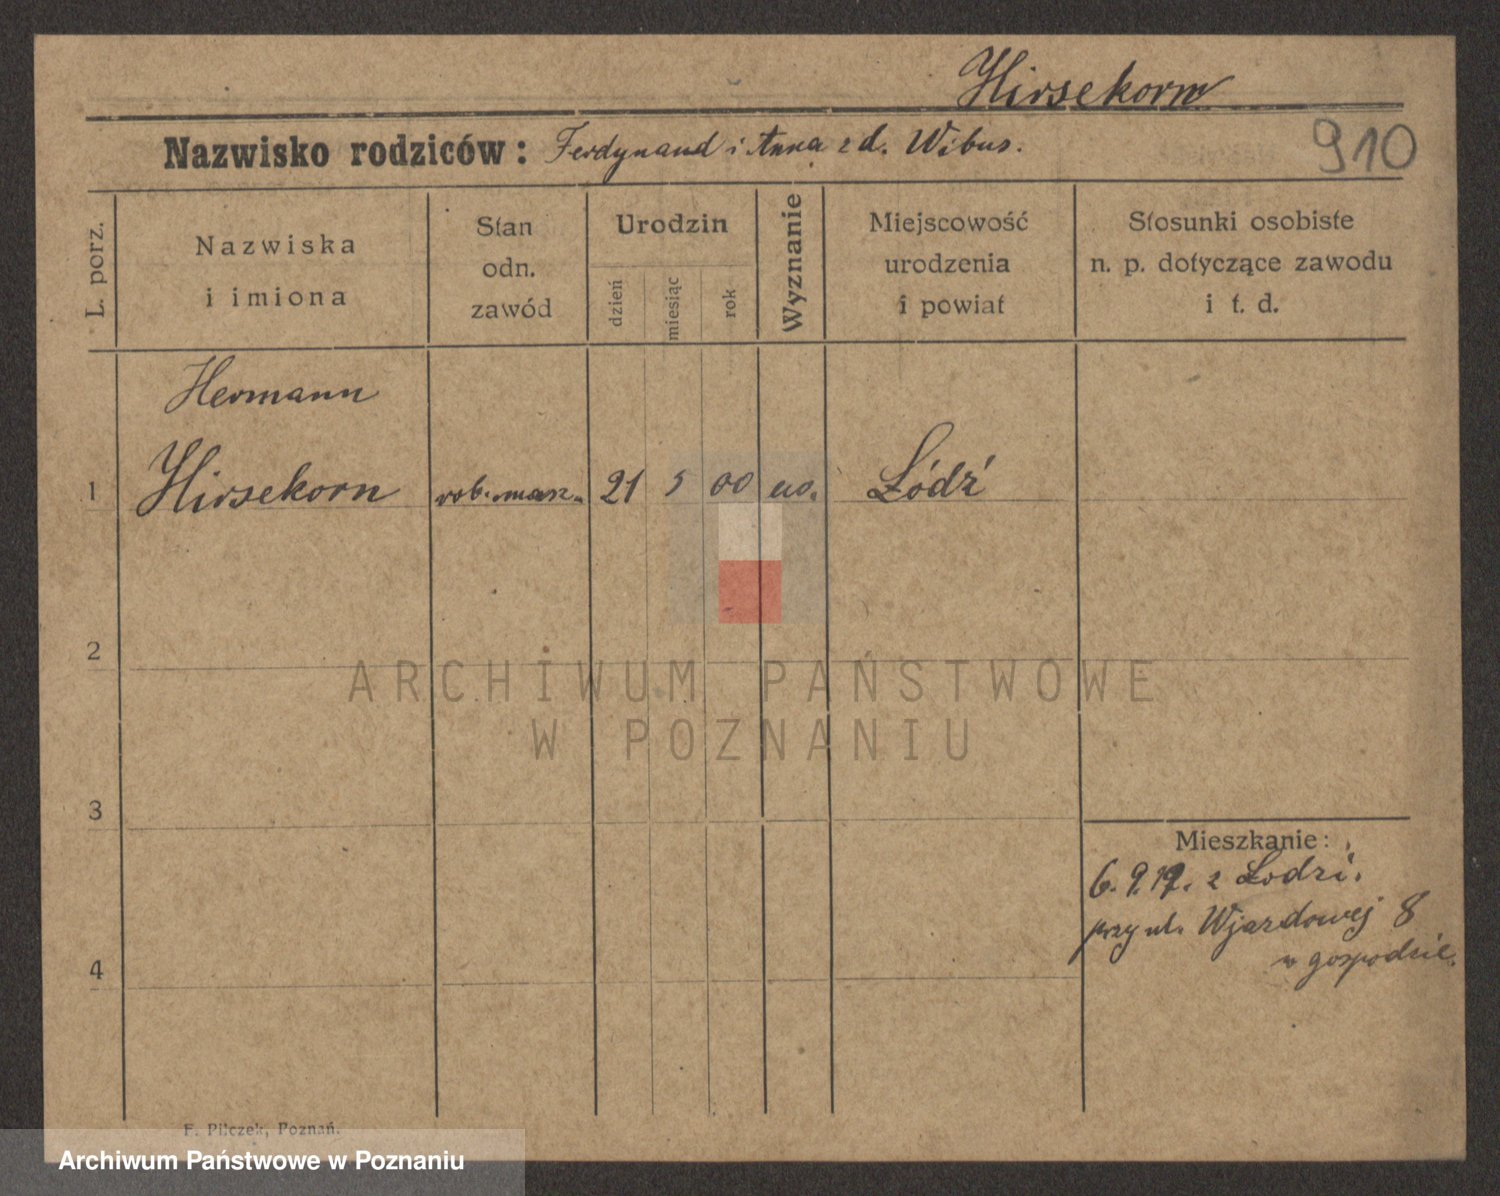 Hirsekorn
910
Nazwisko rodziców: Ferdynand i Anna z d. Wibus.
L. porz.
Nazwiska
i imiona
Stan
odn.
zawód
Urodzin
dzień
miesiąc
rok
Wyznanie
Miejscowość
urodzenia
i powiat
Stosunki osobiste
n. p. dotyczące zawodu
i t. d.
Hermann
1 Hirsekorn rob. 21 5 00 Łódź
2
ARCHIWUM PAŃSTWOWE
W POZNANIU
3
Mieszkanie:
6. 9. z Łodzi.
przy ul. Wjazdowej 8
w gospodzie.
4
F. Pilczek, Poznań.
Archiwum Państwowe w Poznaniu